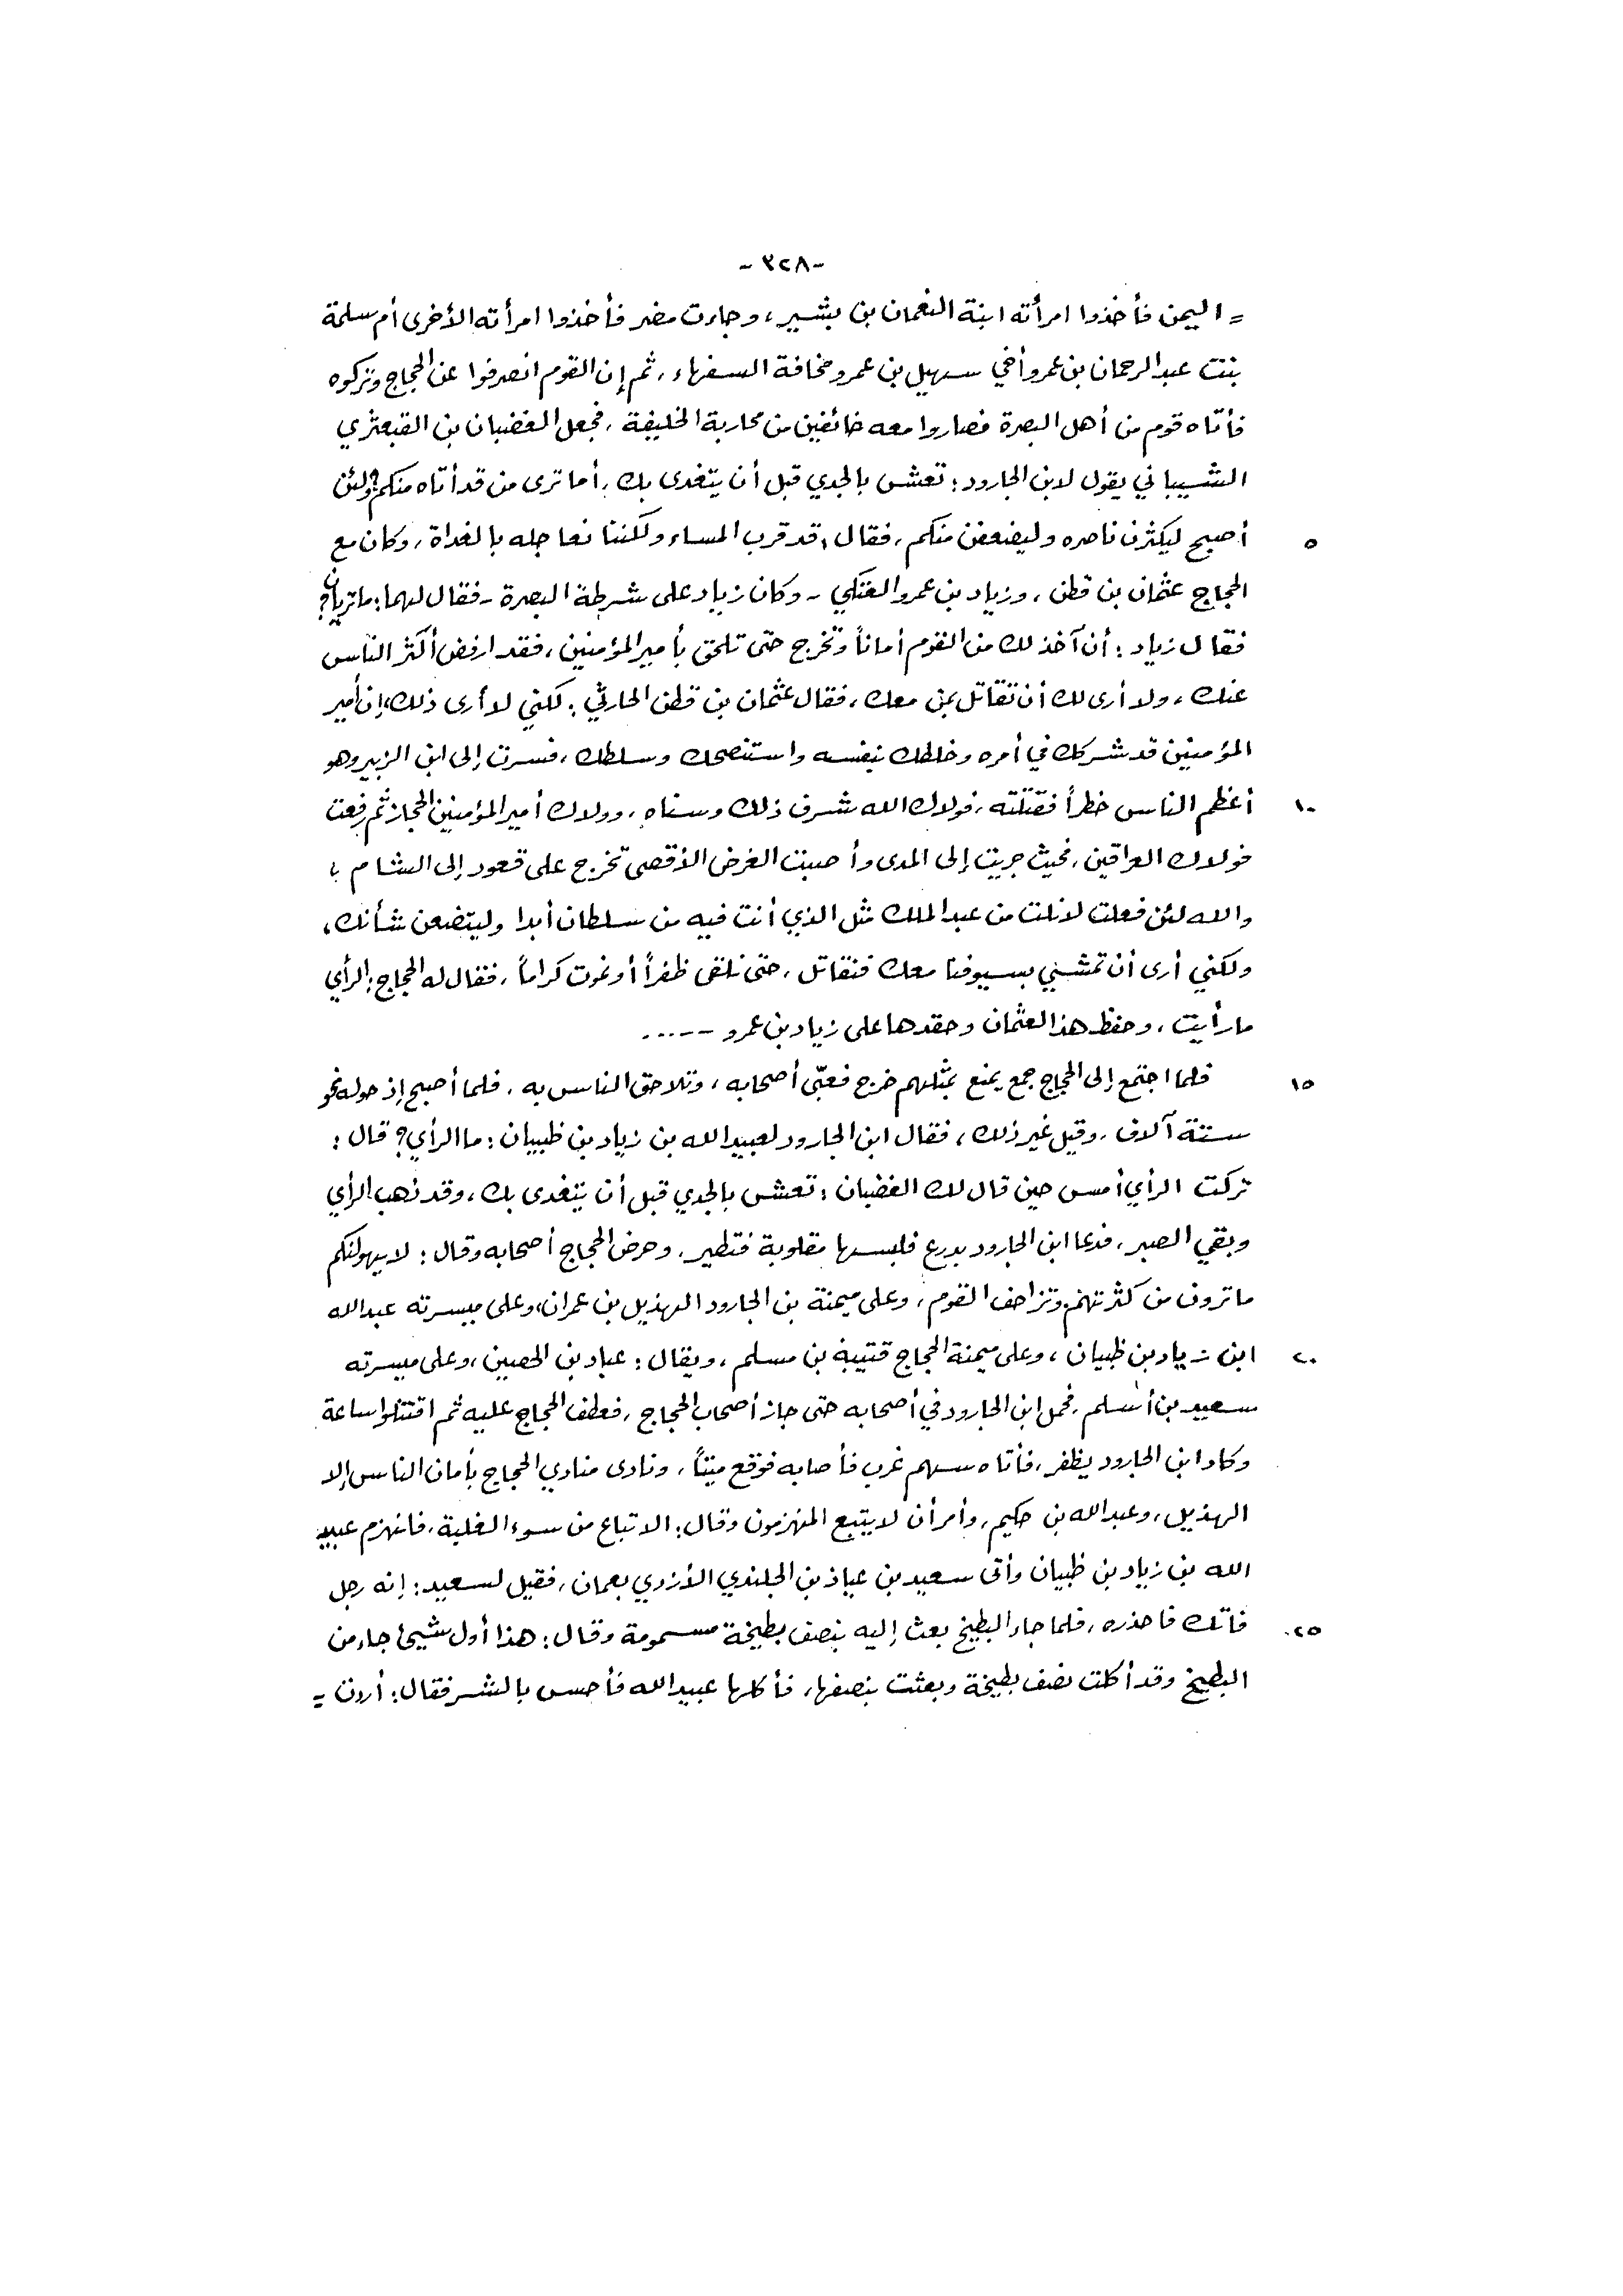 -٣٢٨-
= اليمن فأخذوا امرأته ابنة النعمان بن بشير، وجاءت مضر فأخذوا امرأته الأخرى أم سلمة
بنت عبد الرحمان بن عمرو أخي سهيل بن عمرو مخافة السفهاء، ثم إن القوم انصرفوا عن الحجاج وتركوه
فأتاه قوم من أهل البصرة فصاروا معه خائفين من محاربة الخليفة، فجعل الغضبان بن القبعثري
الشيباني يقول لابن الجارود: تعشى بالجدي قبل أن يتغدى بك، أما ترى من قد أتاه منكم؟ ولئن
٥ أصبح ليكثرن ناصره وليضعفن منكم، فقال: قد قرب المساء ولكننا نعاجله بالغداة، وكان مع
الحجاج عثمان بن قطن، وزياد بن عمرو العتكي - وكان زياد على شرطة البصرة - فقال لهما: ما تريان؟
فقال زياد: أن آخذ لك من القوم أماناً وتخرج حتى تلحق بأمير المؤمنين، فقد ارفض أكثر الناس
عنك، ولا أرى لك أن تقاتل بمن معك، فقال عثمان بن قطن الحارثي: لكني لا أرى ذلك، إن أمير
المؤمنين قد شركك في أمره وخلطك بنفسه واستنصحك وسلطك، فسرت إلى ابن الزبير وهو
١٠ أعظم الناس خطراً فقتلته، فولاك الله شرف ذلك وسناه، وولاك أمير المؤمنين الحجاز ثم رفعت
فولاك العراقين، فحيث جريت إلى المدى وأصبت الغرض الأقصى تخرج على قعود إلى الشام،
والله لئن فعلت لا نلت من عبد الملك مثل الذي أنت فيه من سلطان أبدا وليتضعن شأنك،
ولكني أرى أن تمشي بسيوفنا معك فنقاتل، حتى نلقى ظفراً أو نموت كراماً، فقال له الحجاج: الرأي
ما رأيت، وحفظ هذا لعثمان وحقدها على زياد بن عمرو -----
١٥ فلما اجتمع إلى الحجاج جمع يمنع بمثلهم خرج فعبّى أصحابه، وتلاحق الناس به، فلما أصبح إذ حوله نحو
ستة آلاف، وقيل غير ذلك، فقال ابن الجارود لعبيد الله بن زياد بن ظبيان: ما الرأي؟ قال:
تركت الرأي أمس حين قال لك الغضبان: تعشى بالجدي قبل أن يتغدى بك، وقد ذهب الرأي
وبقي الصبر، فدعا ابن الجارود بدرع فلبسها مقلوبة فتطير، وحرض الحجاج أصحابه وقال: لا يهولنكم
ما ترون من كثرتهم، وتزاحف القوم، وعلى ميمنة بن الجارود الهذيل بن عمران، وعلى ميسرته عبد الله
٢٠ ابن زياد بن ظبيان، وعلى ميمنة الحجاج قتيبة بن مسلم، ويقال: عباد بن الحصين، وعلى ميسرته
سعيد بن أسلم، فحمل ابن الجارود في أصحابه حتى جاز أصحاب الحجاج، فعطف الحجاج عليه ثم اقتتلوا ساعة
وكاد ابن الجارود يظفر، فأتاه سهم غرب فأصابه فوقع ميتاً، ونادى منادي الحجاج بأمان الناس إلا
الهذيل، وعبد الله بن حكيم، وأمر أن لا يتبع المنهزمون وقال: الاتباع من سوء الغلبة، فانهزم عبيد
الله بن زياد بن ظبيان وأتى سعيد بن عياذ بن الجلندي الأزدي بعمان، فقيل لسعيد: إنه رجل
٢٥ فاتك فاحذره، فلما جاء البطيخ بعث إليه بنصف بطيخة مسمومة وقال: هذا أول شيئ جاء من
البطيخ وقد أكلت نصف بطيخة وبعثت بنصفها، فأكلها عبيد الله فأحس بالشر فقال: أردت =